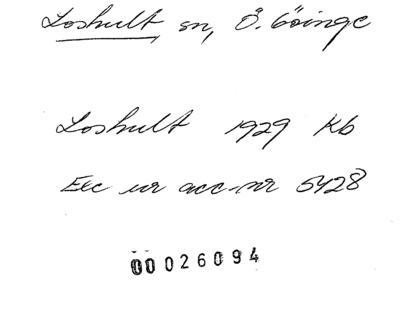 Loshult sn, Ö. Göinge
Loshult 1929 Kb
Exc ur acc-nr 5428
00026094